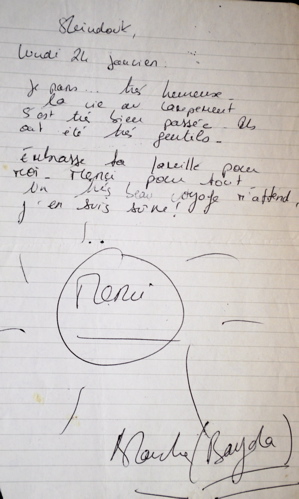 lundi 24 janvier.
je pars... très heureuse.
la vie au campement
s'est très bien passée. Ils
ont été très gentils.
Embrasse ta famille pour
moi. Merci pour tout.
Un très beau voyage m'attend,
j'en suis sûre!
!..
Merci
(Bayda)